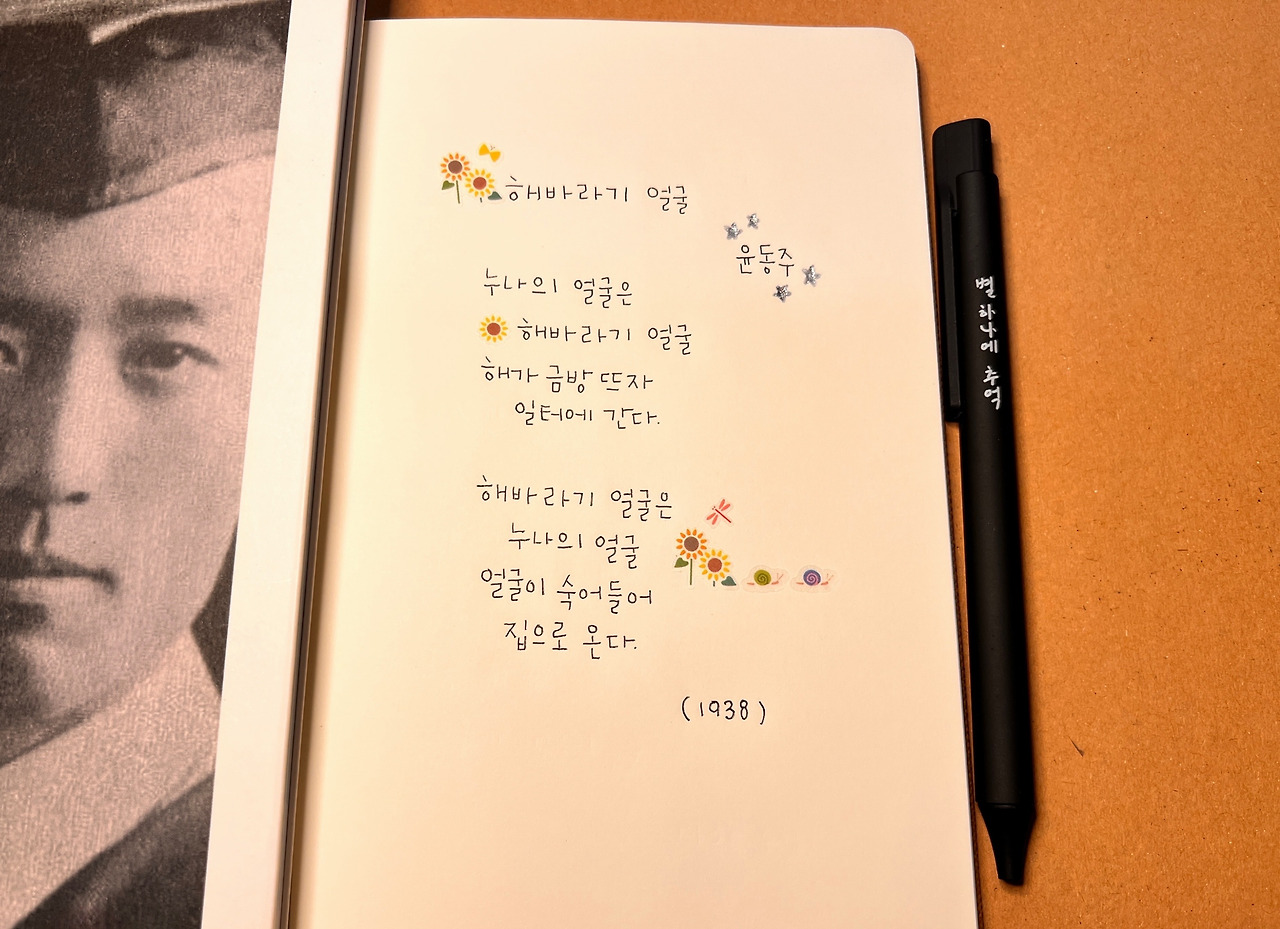 해바라기 얼굴
윤동주
누나의 얼굴은
해바라기 얼굴
해가 금방 뜨자
일터에 간다.
해바라기 얼굴은
누나의 얼굴
얼굴이 숙어들어
집으로 온다.
(1938)
별 하나에 추억